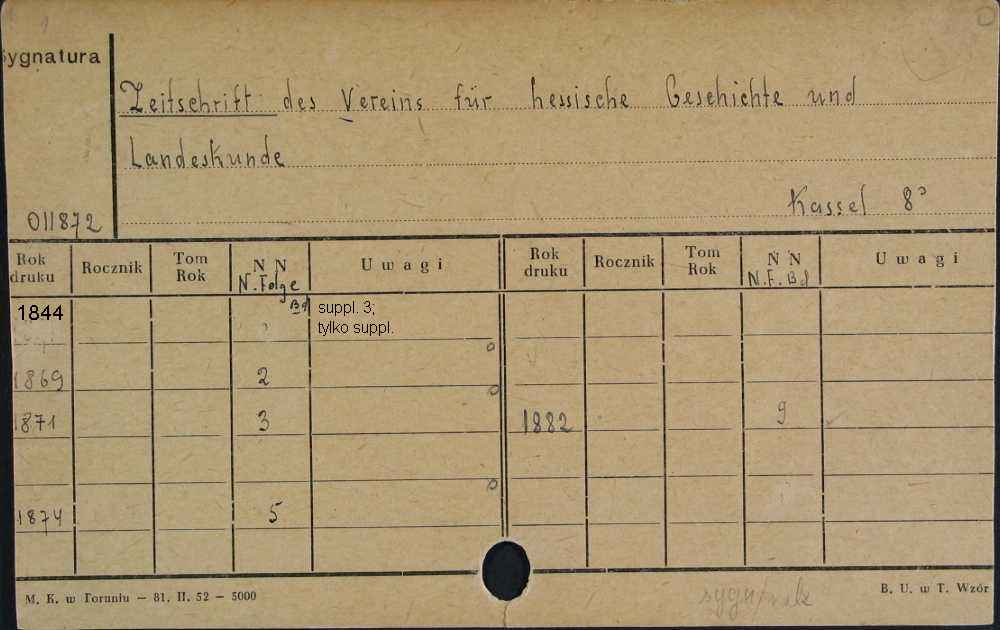 Sygnatura
Zeitschrift des Vereins für hessische Geschichte und
Landeskunde
Kassel 8°
011872
Rok druku Rocznik Tom Rok N N Uwagi Rok druku Rocznik Tom Rok N N Uwagi
N. Folge Bd N. F. Bd
1844 suppl. 3;
tylko suppl.
1869 2
1871 3 1882 9
1874 5
M. K. w Toruniu — 81. II. 52 — 5000 B. U. w T. Wzór